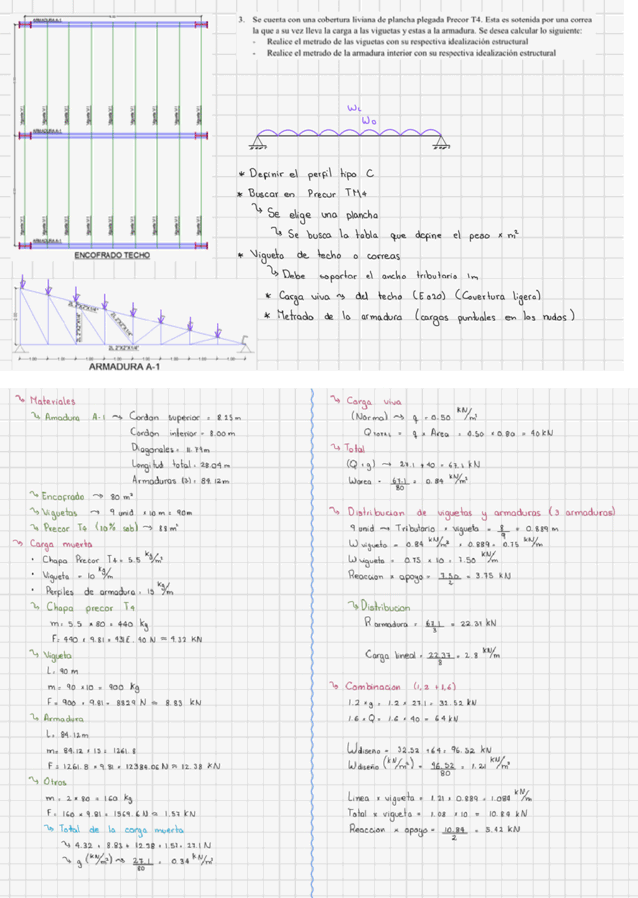 ARMADURA A-1
ARMADURA A-1
ARMADURA A-1
ENCOFRADO TECHO
2L 2"X2"X1/4"
2L 2"X2"X1/4"
2L 2"X2"X1/4"
2L 2"X2"X1/4"
1.00 1.00 1.00 1.00 1.00 1.00 1.00 1.00
ARMADURA A-1
3. Se cuenta con una cobertura liviana de plancha plegada Precor T4. Esta es sotenida por una correa
la que a su vez lleva la carga a las viguetas y estas a la armadura. Se desea calcular lo siguiente:
- Realice el metrado de las viguetas con su respectiva idealización estructural
- Realice el metrado de la armadura interior con su respectiva idealización estructural
WL
WD
* Definir el perfil tipo C
* Buscar en Precor TM4
↳ Se elige una plancha
↳ Se busca la tabla que define el peso x m²
* Vigueta de techo o correas
↳ Debe soportar el ancho tributario 1m
* Carga viva ~> del techo (E020) (Covertura ligera)
* Metrado de la armadura (cargas puntuales en los nudos)
↳ Materiales
↳ Armadura A-1 ~> Cordon superior = 8.25m
Cordon interior = 8.00m
Diagonales = 11.79m
Longitud total = 28.04m
Armaduras (3) = 84.12m
↳ Encofrado -> 80 m²
↳ Viguetas -> 9 unid x 10 m = 90m
↳ Precor T4 (10% sob) -> 88 m²
↳ Carga muerta
• Chapa Precor T4 = 5.5 kg/m²
• Vigueta = 10 kg/m
• Perfiles de armadura = 15 kg/m
↳ Chapa precor T4
m = 5.5 x 80 = 440 kg
F = 440 x 9.81 = 4316.40 N = 4.32 KN
↳ Vigueta
L = 90 m
m = 90 x 10 = 900 kg
F = 900 x 9.81 = 8829 N = 8.83 kN
↳ Armadura
L = 84.12m
m = 84.12 x 15 = 1261.8
F = 1261.8 x 9.81 = 12384.06 N = 12.38 KN
↳ Otros
m = 2 x 80 = 160 kg
F = 160 x 9.81 = 1569.6 N = 1.57 KN
↳ Total de la carga muerta
↳ 4.32 + 8.83 + 12.38 + 1.57 = 27.1 N
↳ g (kN/m²) ~> 27.1/80 = 0.34 kN/m²
↳ Carga viva
(Normal) ~> q = 0.50 kN/m²
Q total = q x Area = 0.50 x 0.80 = 40 kN
↳ Total
(Q + g) -> 27.1 + 40 = 67.1 kN
W area = 67.1/80 = 0.84 kN/m²
↳ Distribucion de viguetas y armaduras (3 armaduras)
9 unid -> Tributario x vigueta = 8/9 = 0.889 m
W vigueta = 0.84 kN/m² x 0.889 = 0.75 kN/m
W vigueta = 0.75 x 10 = 7.50 kN/m
Reaccion x apoyo = 7.50/2 = 3.75 kN
↳ Distribucion
R armadura = 67.1/3 = 22.37 kN
Carga lineal = 22.37/8 = 2.8 kN/m
↳ Combinacion (1,2 + 1,6)
1.2 x g = 1.2 x 27.1 = 32.52 kN
1.6 x Q = 1.6 x 40 = 64 kN
Wdiseño = 32.52 + 64 = 96.52 kN
Wdiseño (kN/m²) = 96.52/80 = 1.21 kN/m²
Linea x vigueta = 1.21 x 0.889 = 1.084 kN/m
Total x vigueta = 1.08 x 10 = 10.84 kN
Reaccion x apoyo = 10.84/2 = 5.42 kN